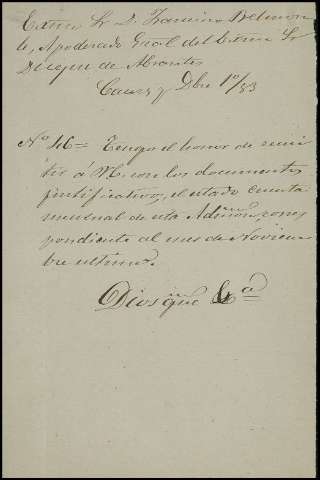 Excmo Sr D. Francisco Belmon
te, Apoderado Gral del Excmo Sr
Duque de Abrantes
Caceres y Dbre 1º/83
Nº 46= Tengo el honor de remi
tir á V.E. con los documentos
justificativos, el estado cuenta
mensual de esta Admón, corres
pondiente al mes de Noviem
bre ultimo.
Dios que &a